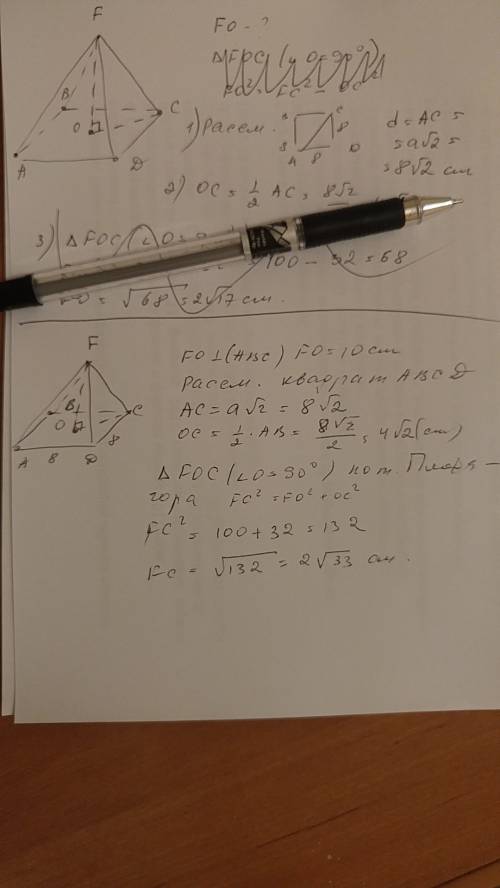 F
FO - ?
B
C
O
A
D
1) Рассм.
C
8
8
A
8
D
d = AC =
= a√2 =
= 8√2 см
2) OC = 1/2 AC = 8√2
3) Δ FOC (∠O =
= 100 - 32 = 68
FO = √68 = 2√17 см.
F
B
C
O
A
8
D
8
FO ⊥ (ABC) FO = 10 см
Рассм. квадрат ABCD
AC = a√2 = 8√2
OC = 1/2 · AB = 8√2/2 = 4√2 (см)
Δ FOC (∠O = 90°) по т. Пифа-
гора FC² = FO² + OC²
FC² = 100 + 32 = 132
FC = √132 = 2√33 см.